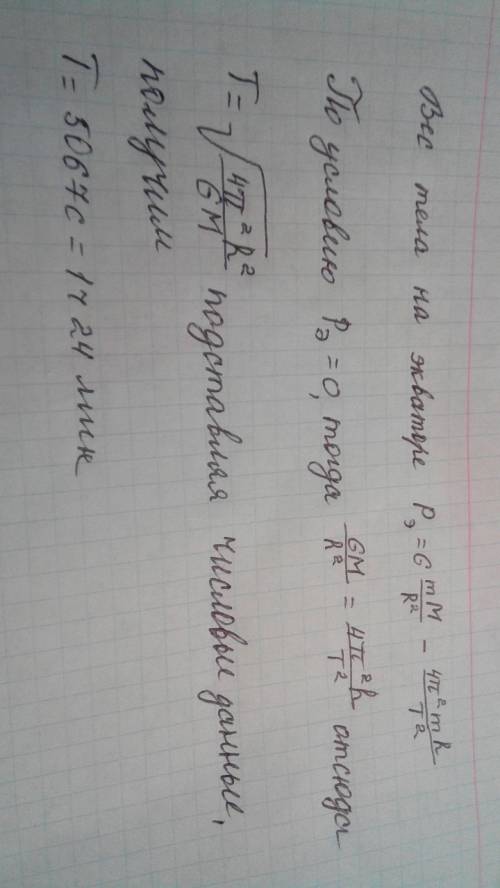 Вес тела на экваторе Pэ = G mM/R² − 4π²mR/T²
По условию Pэ = 0, тогда GM/R² = 4π²R/T² отсюда
T = √(4π²R²/GM) подставляя числовые данные,
получим
T = 5067с = 1ч 24 мин